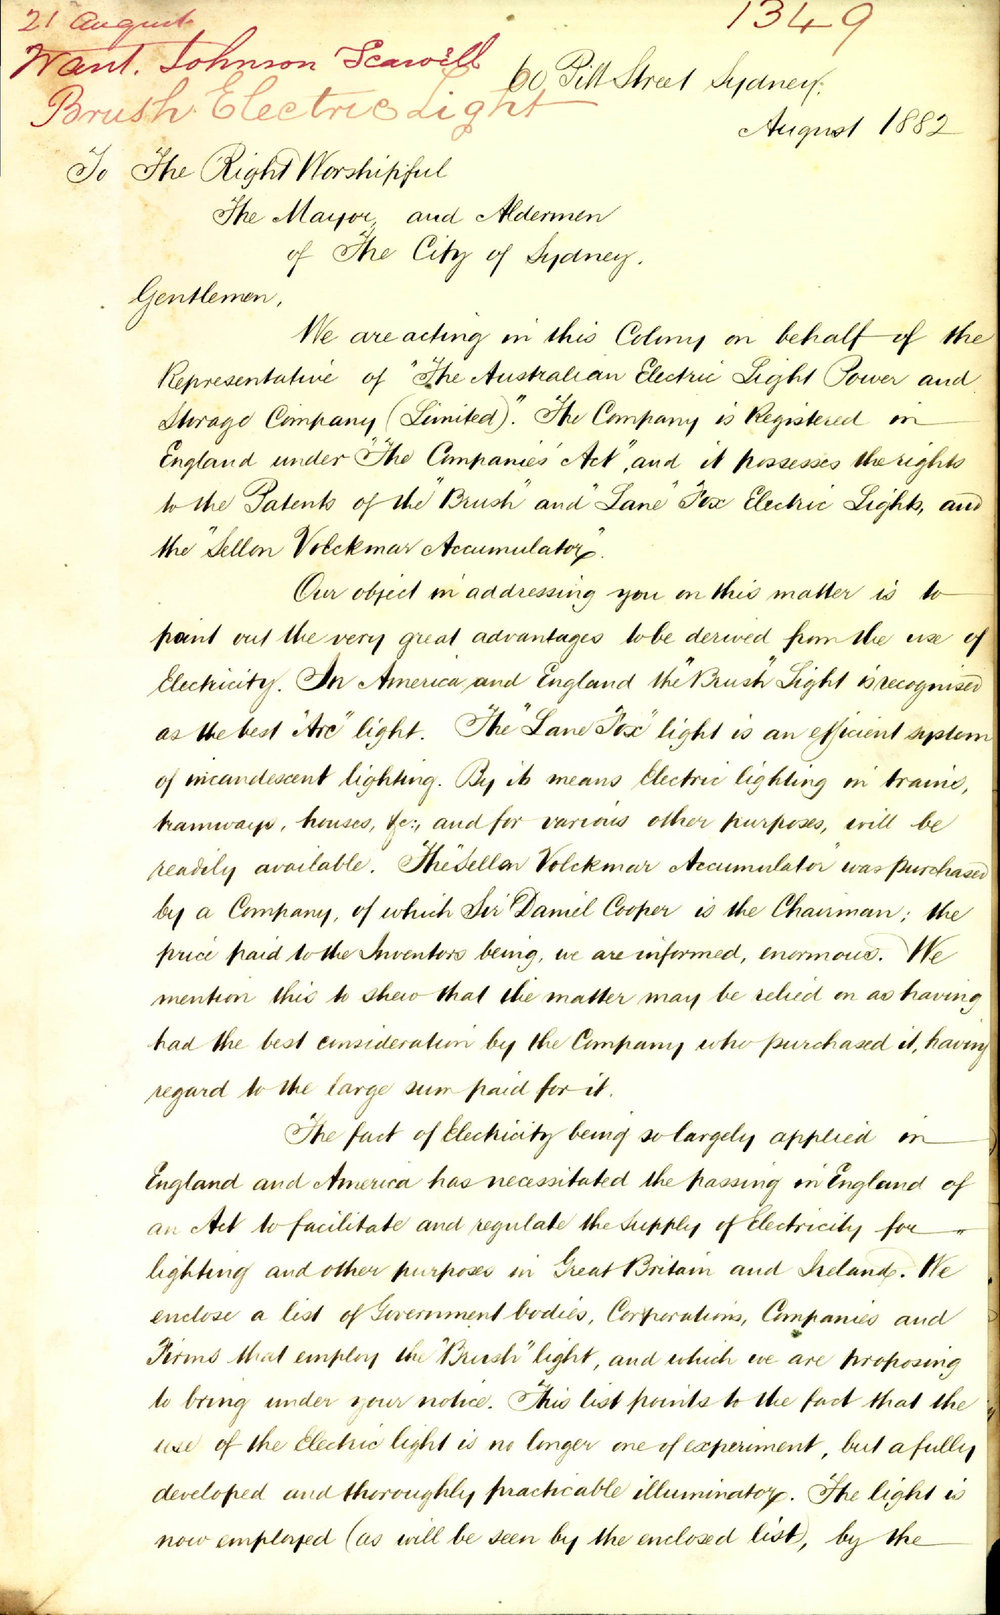 21 August
1349
Want. Johnson Scarvell
60 Pitt Street Sydney.
Brush Electric Light
August 1882
To The Right Worshipful
The Mayor, and Aldermen
of The City of Sydney.
Gentlemen,
We are acting in this Colony on behalf of the
Representative of "The Australian Electric Light Power and
Storage Company (Limited)". The Company is Registered in
England under "The Companies' Act", and it possesses the rights
to the Patents of the "Brush" and "Lane" Fox Electric Lights, and
the "Sellon Volckmar Accumulator".
Our object in addressing you on this matter is to
point out the very great advantages to be derived from the use of
Electricity. In America and England the "Brush" Light is recognised
as the best "Arc" light. The "Lane Fox" light is an efficient system
of incandescent lighting. By its means Electric lighting in trains,
tramways, houses, &c:, and for various other purposes, will be
readily available. The "Sellon Volckmar Accumulator" was purchased
by a Company, of which Sir Daniel Cooper is the Chairman; the
price paid to the Inventors being, we are informed, enormous. We
mention this to shew that the matter may be relied on as having
had the best consideration by the Company who purchased it, having
regard to the large sum paid for it.
The fact of Electricity being so largely applied in
England and America has necessitated the passing in England of
an Act to facilitate and regulate the supply of Electricity for
lighting and other purposes in Great Britain and Ireland. We
enclose a list of Government bodies, Corporations, Companies and
Firms that employ the "Brush" light, and which we are proposing
to bring under your notice. This list points to the fact that the
use of the Electric light is no longer one of experiment, but a fully
developed and thoroughly practicable illuminator. The light is
now employed (as will be seen by the enclosed list), by the